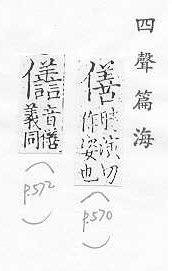 四聲篇海
僐時演切
作姿也
(p.570)
音僐
義同
(p.572)